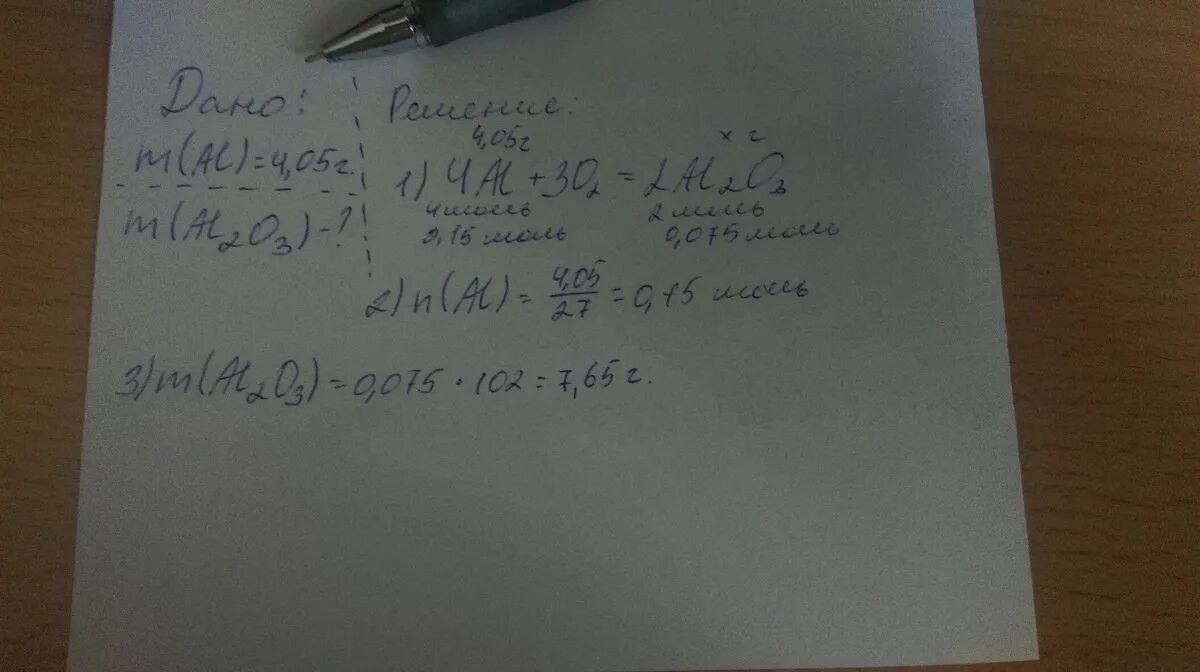 Дано:
m(Al)=4,05г.
m(Al₂O₃)-?
Решение:
4,05г
x г
1) 4Al+3O₂=2Al₂O₃
4моль
2 моль
0,15 моль
0,075моль
2) n(Al)=4,05/27=0,15 моль
3) m(Al₂O₃)=0,075·102=7,65г.